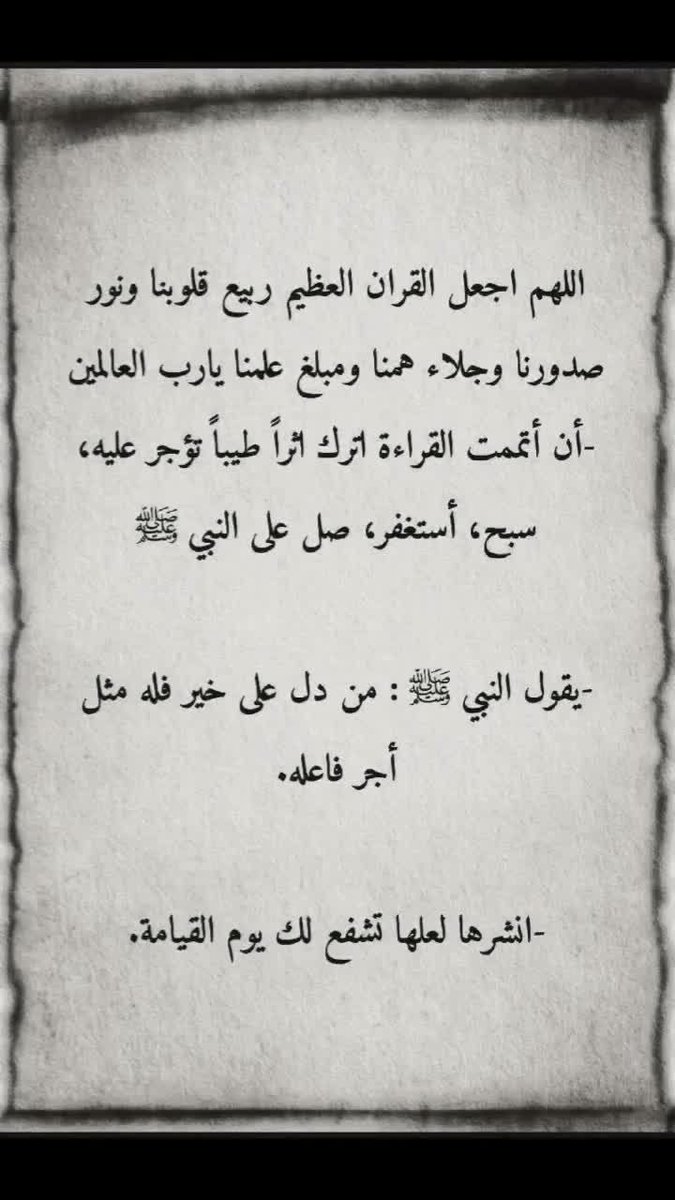 اللهم اجعل القران العظيم ربيع قلوبنا ونور
صدورنا وجلاء همنا ومبلغ علمنا يارب العالمين
-أن أتممت القراءة اترك اثراً طيباً تؤجر عليه،
سبح، أستغفر، صل على النبي ﷺ
-يقول النبي ﷺ : من دل على خير فله مثل
أجر فاعله.
-انشرها لعلها تشفع لك يوم القيامة.